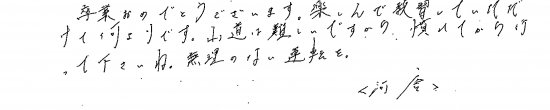 卒業おめでとうございます。楽しんで教習していただ
けて何よりです。山道は難しいですから、慣れてから行
って下さいね。無理のない運転を。
<河合>